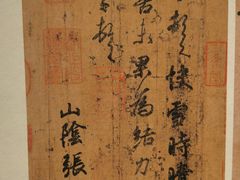 頓首快雪時晴
善未果為結力
頓首
山陰張